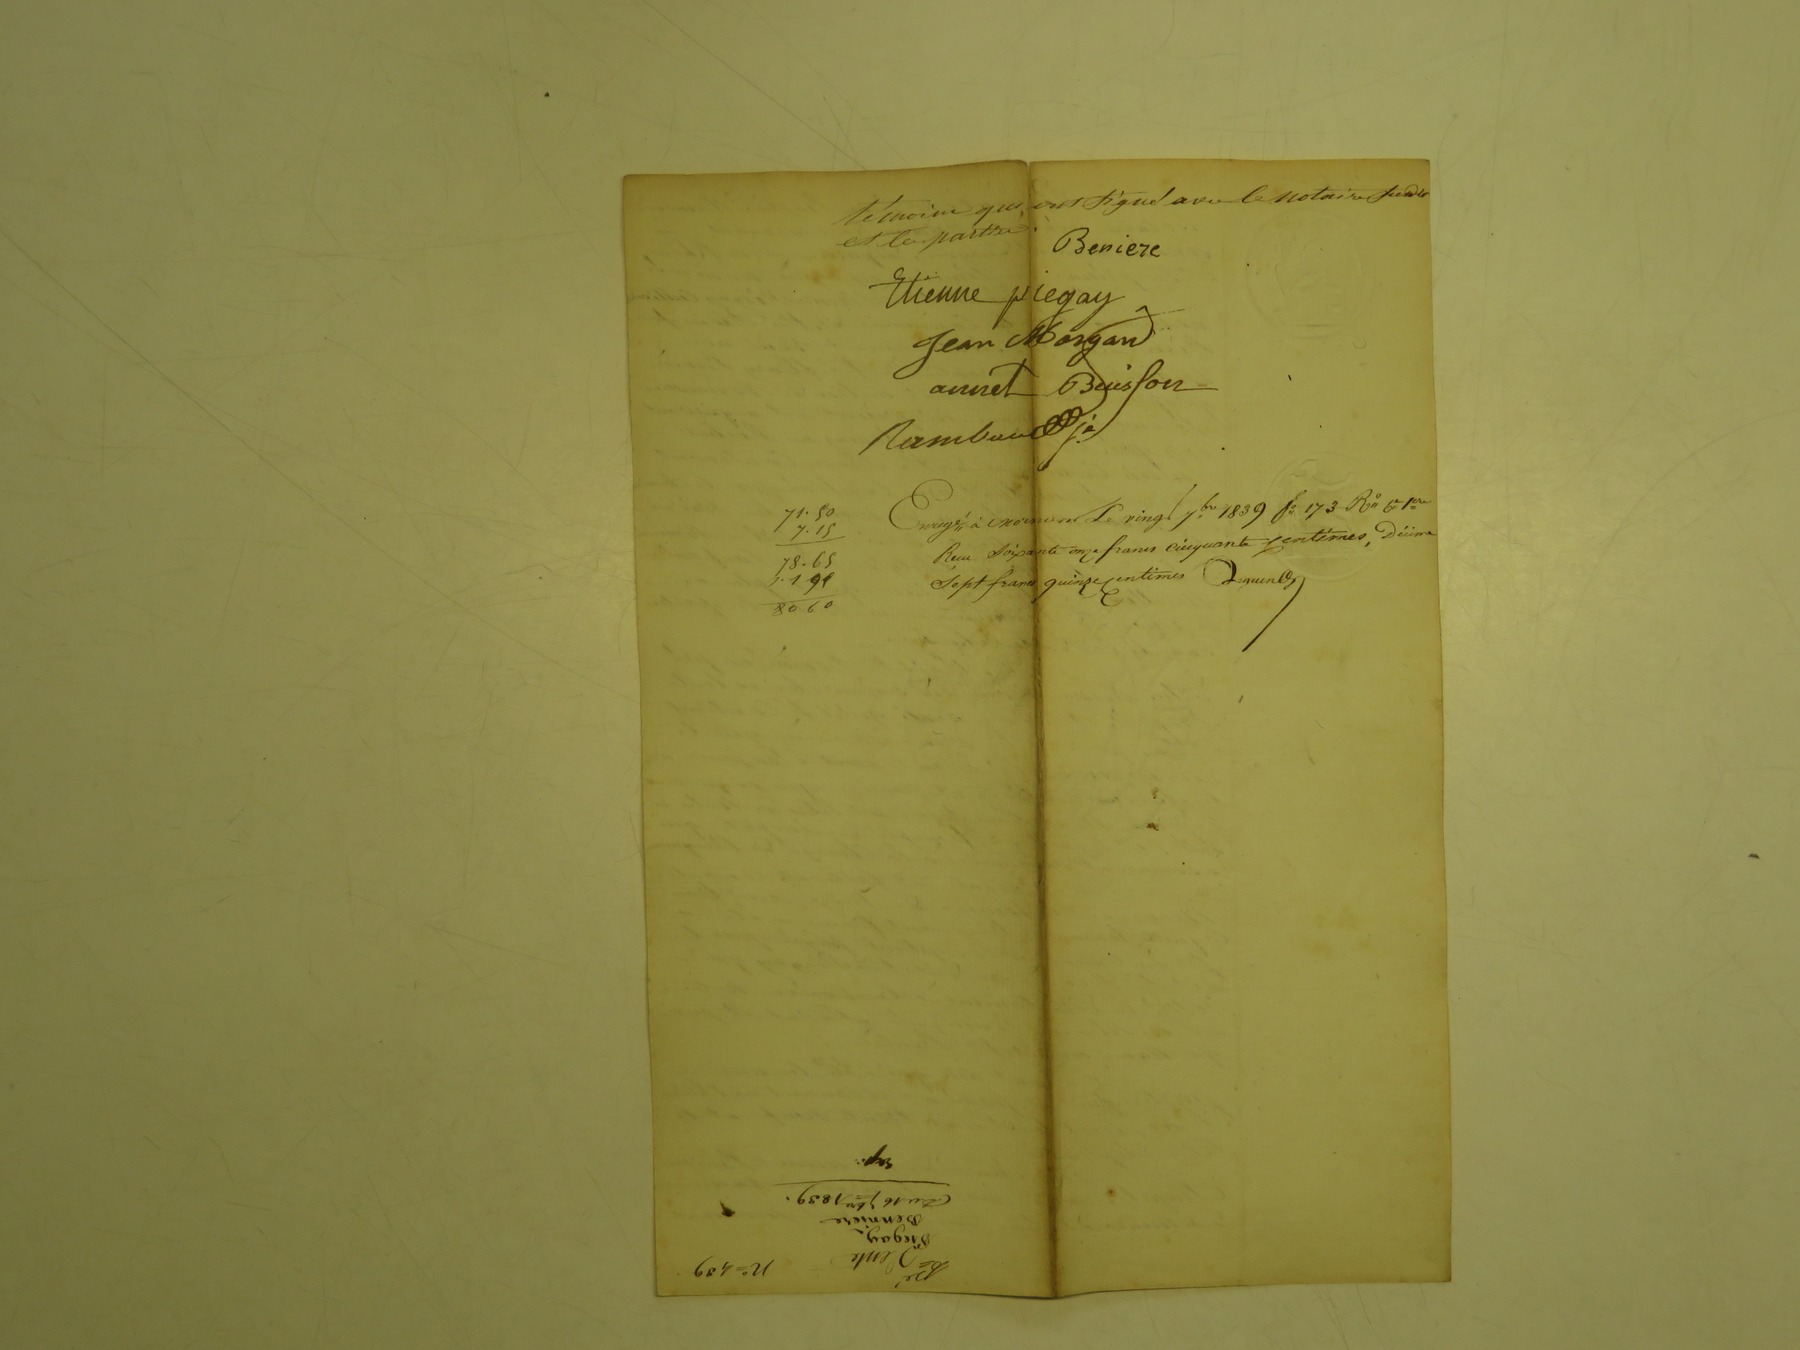 témoins qui ont signé avec le notaire susdit
et les parties.
Beniere
Etienne piegay
Jean Morgand
annet Buisson
Rambaud
71.50
7.15
78.65
1.95
80.60
Enregé à mornant Le vingt 7bre 1839 fo 173 Ro Ce 1ere
Recu soixante onze francs cinquante centimes, Décime
Sept francs quinze centimes
No 489
Vente
Piegay
Benniere
Du 16 7bre 1839.